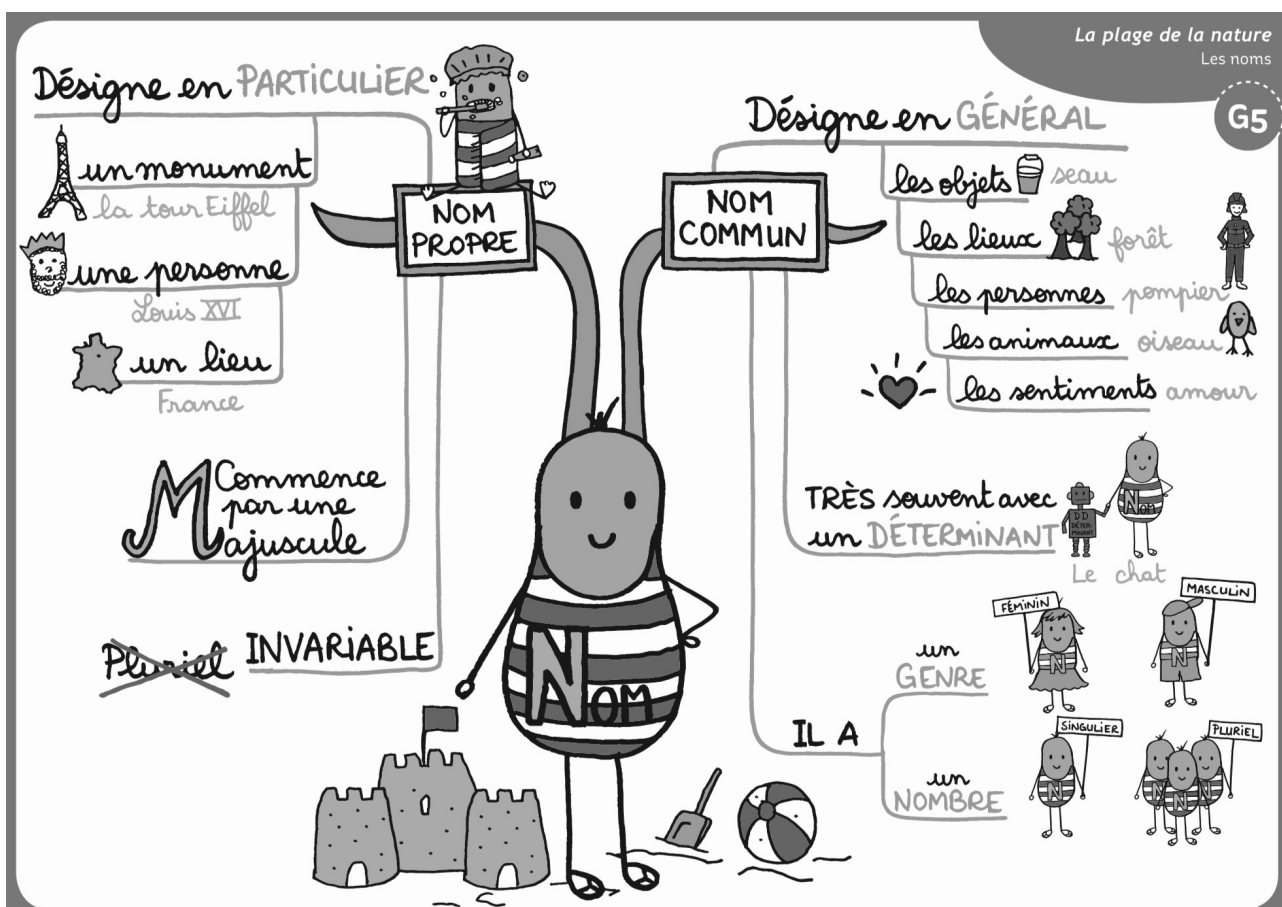 La plage de la nature
Les noms
G5
Désigne en PARTICULIER
un monument
la tour Eiffel
une personne
Louis XVI
un lieu
France
NOM
PROPRE
Commence
par une
Majuscule
Pluriel INVARIABLE
Désigne en GÉNÉRAL
NOM
COMMUN
les objets seau
les lieux forêt
les personnes pompier
les animaux oiseau
les sentiments amour
TRÈS souvent avec
un DÉTERMINANT
DD
DÉTER-
MINANT
NOM
Le chat
IL A
un
GENRE
FÉMININ
N
MASCULIN
N
un
NOMBRE
SINGULIER
N
PLURIEL
N N N
NOM